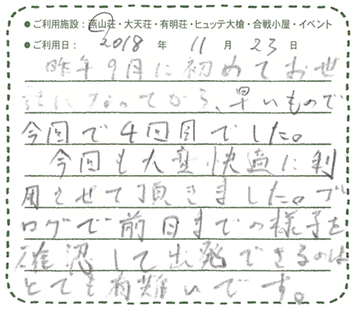 ●ご利用施設：燕山荘・大天荘・有明荘・ヒュッテ大槍・合戦小屋・イベント
●ご利用日： 2018 年 11 月 23 日
昨年9月に初めてお世
話になってから、早いもので
今回で4回目でした。
今回も大変快適に利
用させて頂きました。ブ
ログで前日までの様子を
確認して出発できるのは
とても有難いです。